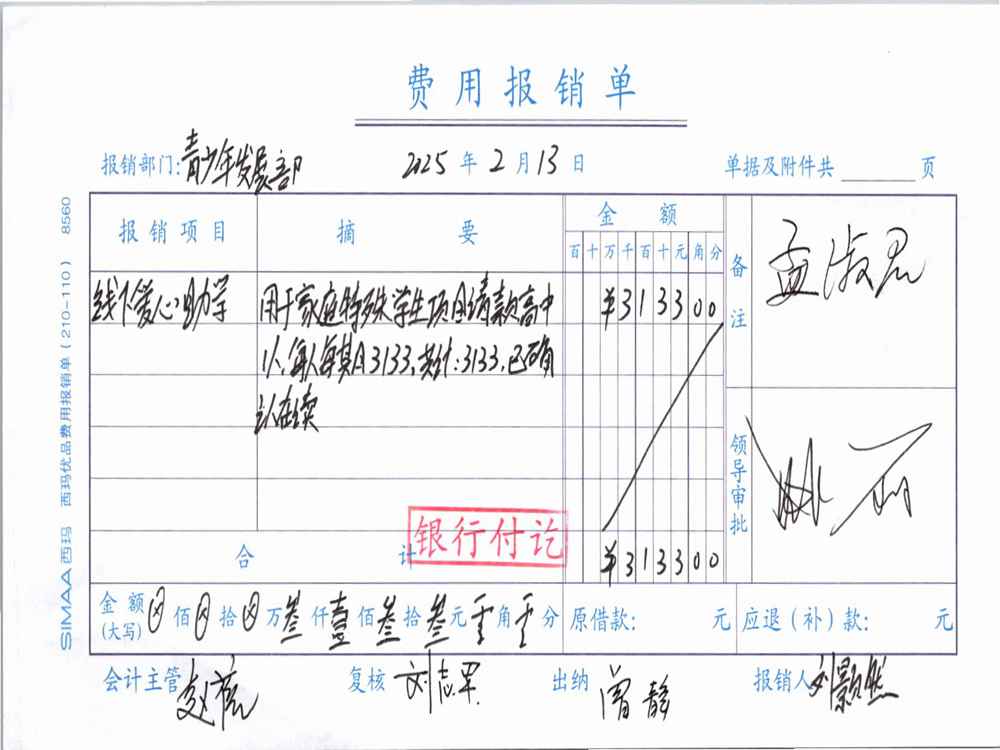 费用报销单
报销部门:青少年发展部 2025年2月13日 单据及附件共 页
报销项目 摘要 金额 备注 孟淑君
百十万千百十元角分
线下爱心助学 用于家庭特殊学生项目请款高中 ¥313300
1人,每人每期3133,共计:3133,已确
认在续
领导审批
银行付讫
合计 ¥313300
金额(大写) 佰 拾 万叁仟壹佰叁拾叁元零角零分 原借款: 元 应退(补)款: 元
会计主管 复核 刘志军 出纳 曾静 报销人 刘景然
SIMAA西玛 西玛优品费用报销单(210-110) 8560